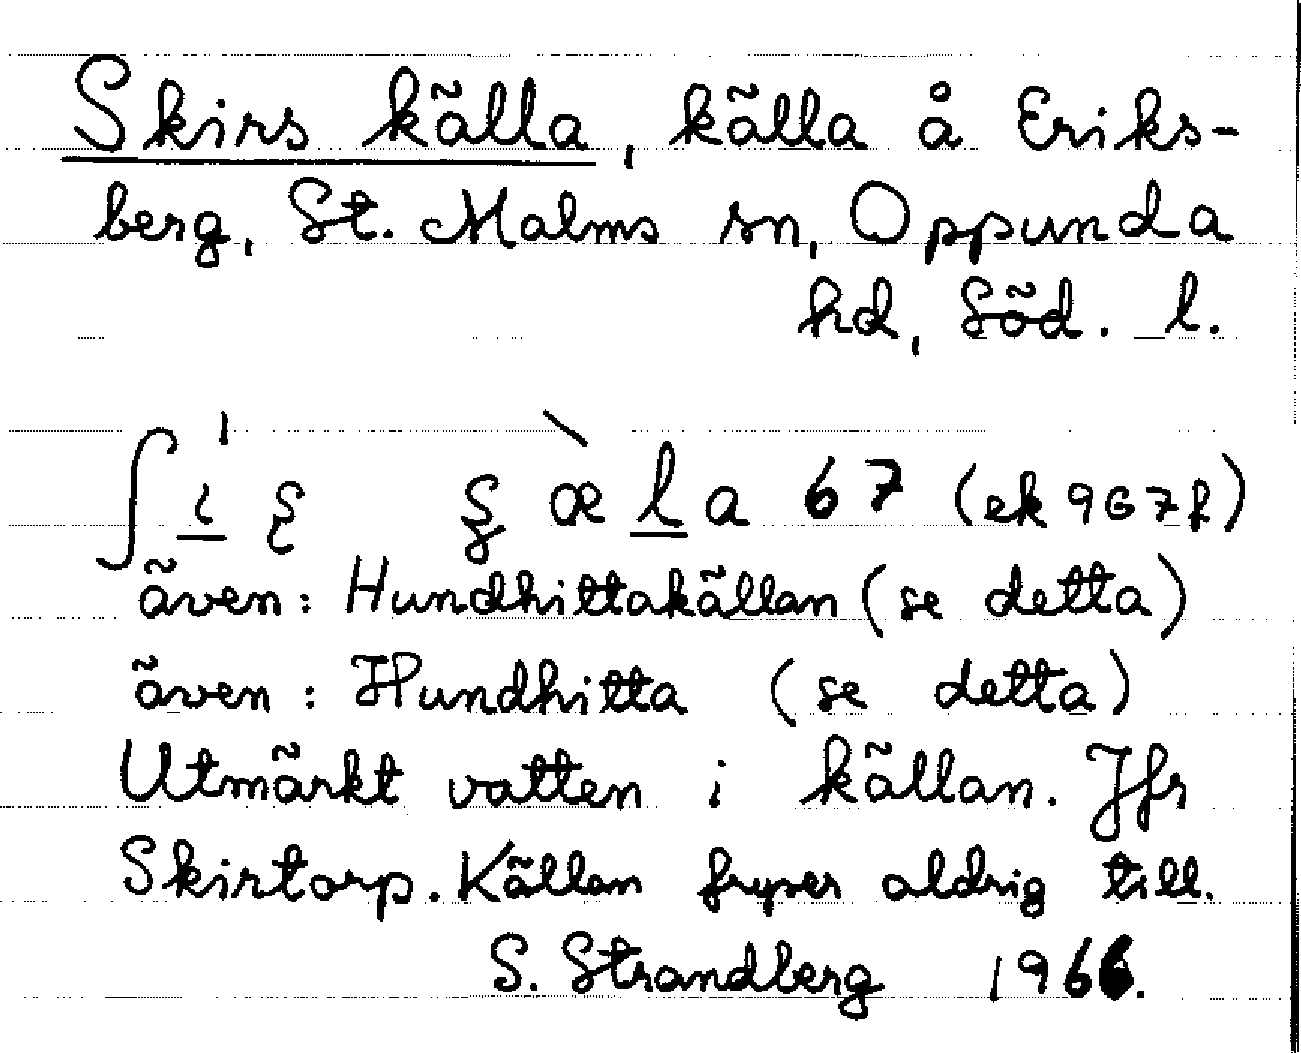 Skirs källa, källa å Eriks-
berg, St. Malms sn, Oppunda
hd, Söd. l.
även: Hundhittakällan (se detta)
även: Hundhitta (se detta)
Utmärkt vatten i källan. Jfr
Skirtorp. Källan fryser aldrig till.
S. Strandberg 1966.